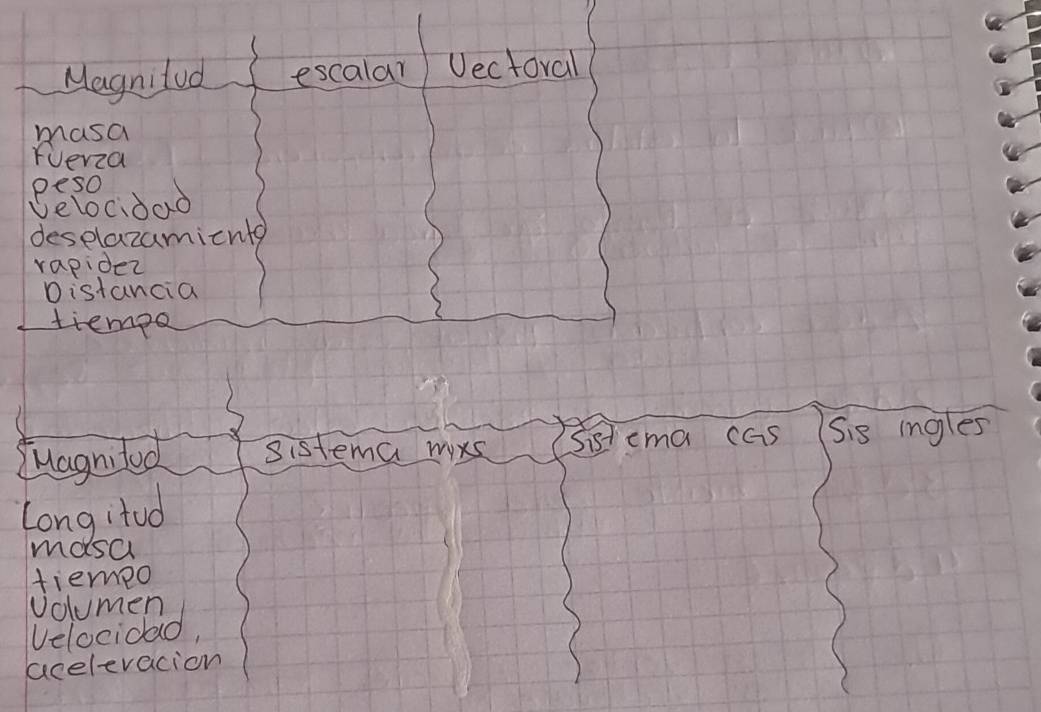 Magnitud escalar Vectoral
masa
fuerza
peso
velocidad
desplazamiento
rapidez
Distancia
tiempo
Magnitud sistema mxs Sistema CGS Sis ingles
Longitud
masa
tiempo
Volumen
Velocidad,
aceleracion